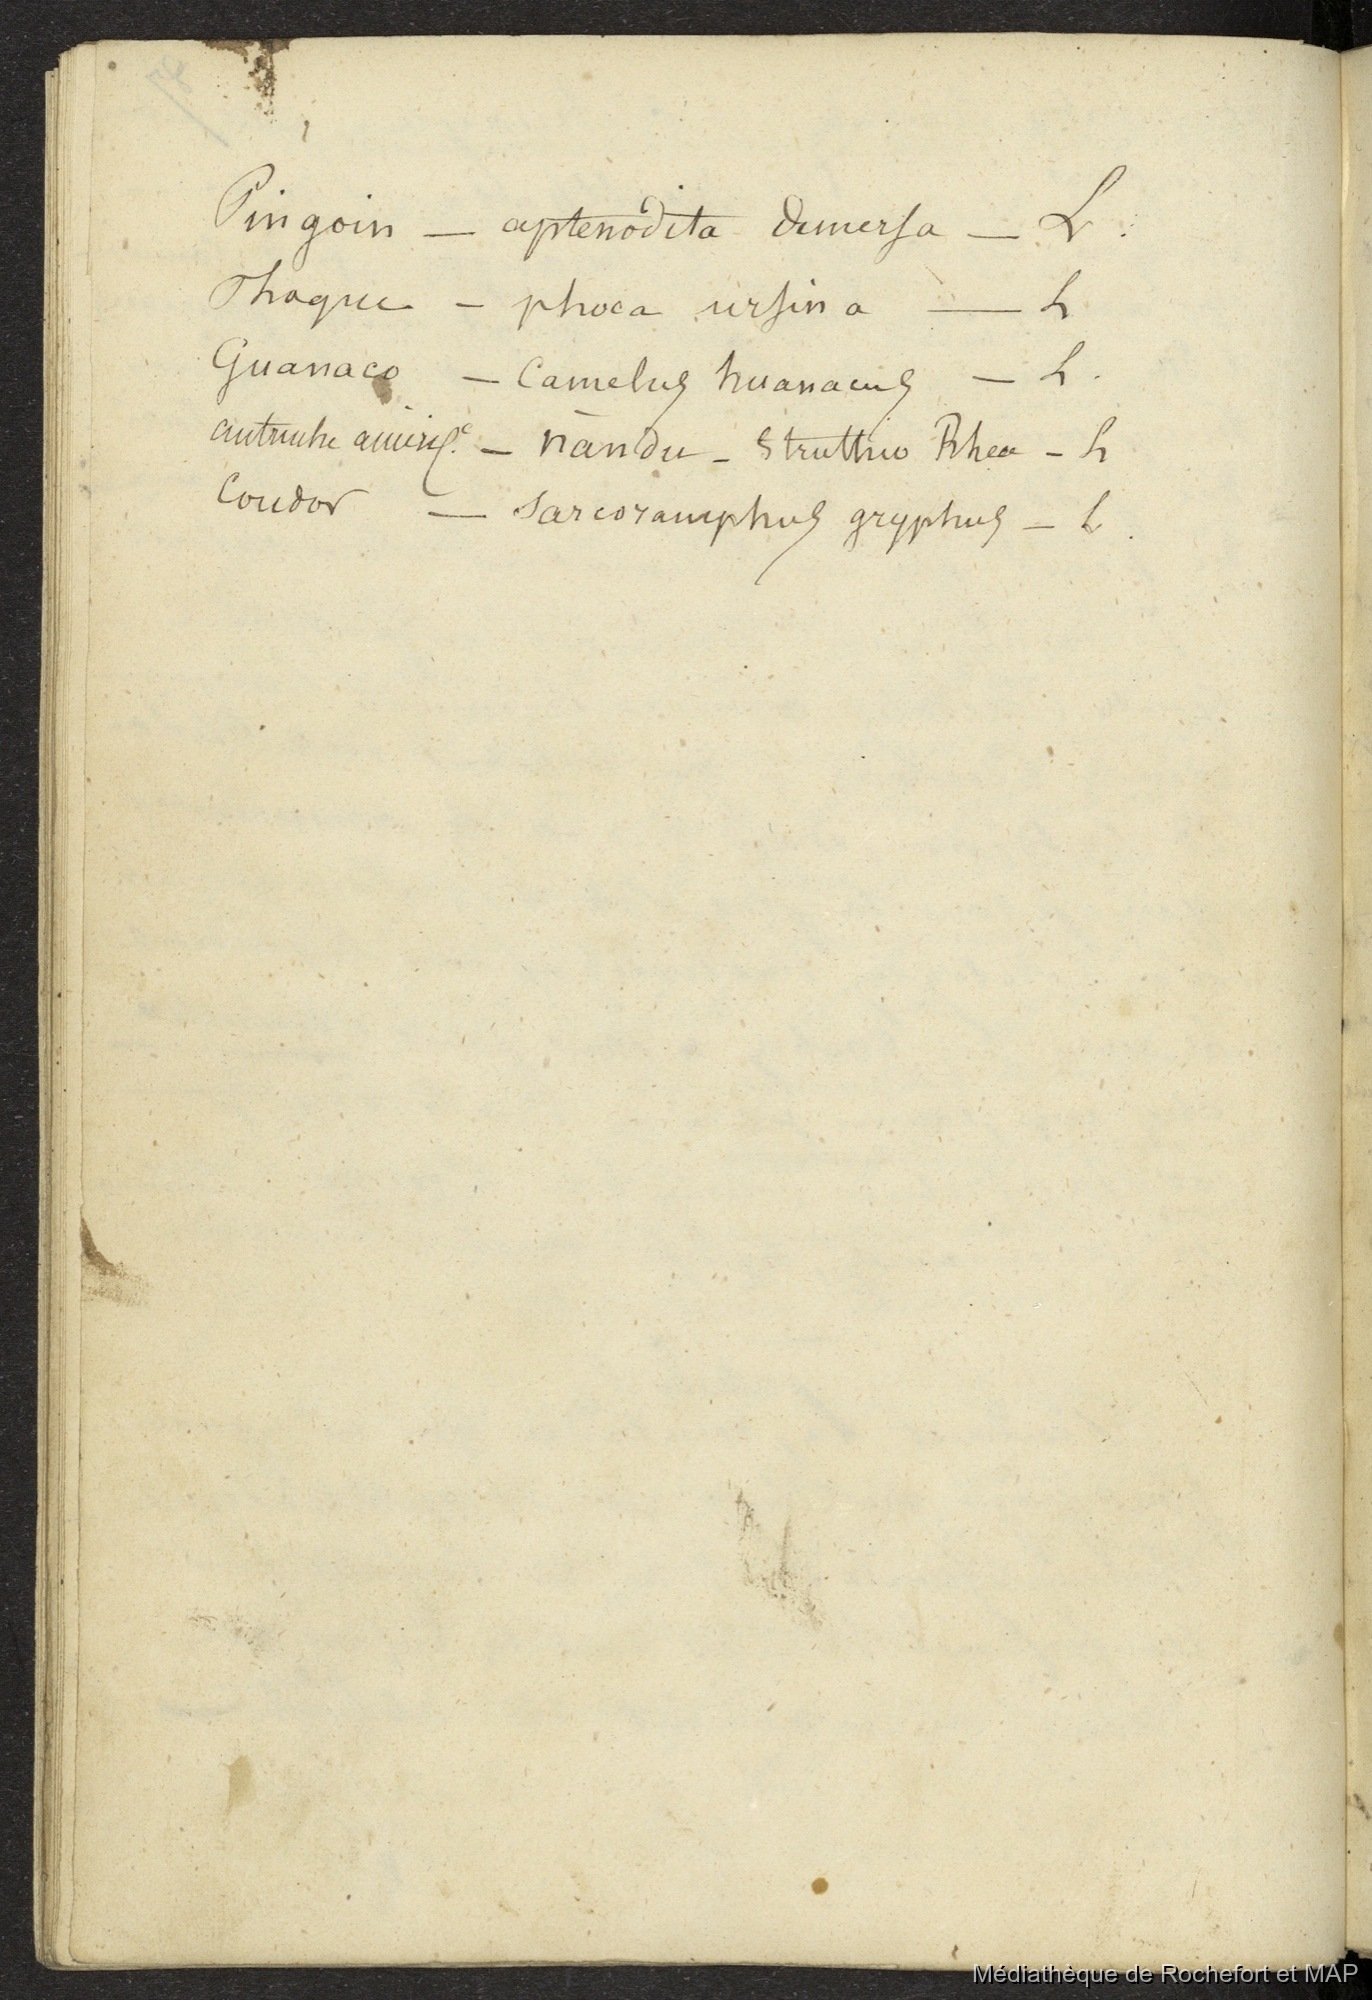 Pingoin — aptenodita demersa — L.
Phoque — phoca ursina — L
Guanaco — Camelus huanacus — L.
autruche améric.e — nandu — Struthio Rhea — L
Condor — Sarcoramphus gryphus — L.
Médiathèque de Rochefort et MAP